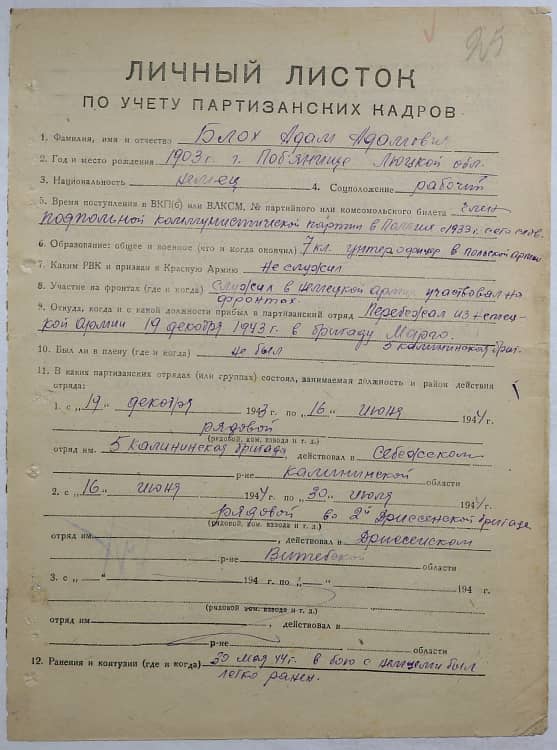 25
ЛИЧНЫЙ ЛИСТОК
ПО УЧЕТУ ПАРТИЗАНСКИХ КАДРОВ
1. Фамилия, имя и отчество Блох Адам Адамович
2. Год и место рождения 1903 г. г. Побъянице Люцкой обл.
3. Национальность немец 4. Соцположение рабочий
5. Время поступления в ВКП(б) или ВЛКСМ, № партийного или комсомольского билета член
подпольной коммунистической партии в Польше с 1933 г.
6. Образование: общее и военное (что и когда окончил) 7 кл. унтерофицер в польской армии
7. Каким РВК и призван в Красную Армию не служил
8. Участие на фронтах (где и когда) служил в немецкой армии участвовал на
фронтах.
9. Откуда, когда и с какой должности прибыл в партизанский отряд Перебежал из немец-
кой армии 19 декабря 1943 г. в бригаду Марго.
5 калининская бриг.
10. Был ли в плену (где и когда) не был
11. В каких партизанских отрядах (или группах) состоял, занимаемая должность и район действия
отряда:
1. с „19” декабря 1943 г. по „16” июня 1944 г.
рядовой
(рядовой, ком. взвода и т. д.)
отряд им. 5 калининская бригада, действовал в Себежском
р-не калининской области
2. с „16” июня 1944 г. по „30” июля 1944 г.
рядовой во 2й Дриссенской бригаде
(рядовой, ком. взвода и т. д.)
отряд им , действовал в Дриссенском
р-не Витебской области
3. с „—“ 194 г. по „—“ 194 г.
(рядовой ком. взвода и т. д.)
отряд им , действовал в
р-не области
12. Ранения и контузии (где и когда) 30 мая 44 г. в бою с немцами был
легко ранен.